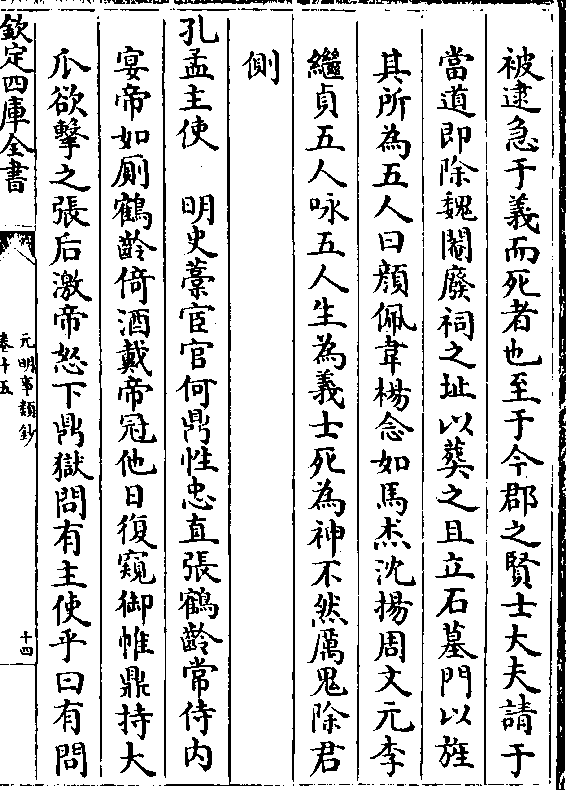 被逮急于義而死者也至于今郡之賢士大夫請于
當道即除魏閹廢祠之址以葬之且立石墓門以旌
其所為五人曰顔佩韋楊念如馬杰沈揚周文元李
繼貞五人咏五人生為義士死為神不然厲鬼除君
側
孔孟主使　明史藁宦官何鼎性忠直張鶴齡常侍内
宴帝如厠鶴齡倚酒戴帝冠他日復窺御帷鼎持大
瓜欲擊之張后激帝怒下鼎獄問有主使乎曰有問
欽定四庫全書
元明事類鈔
卷十五
十四